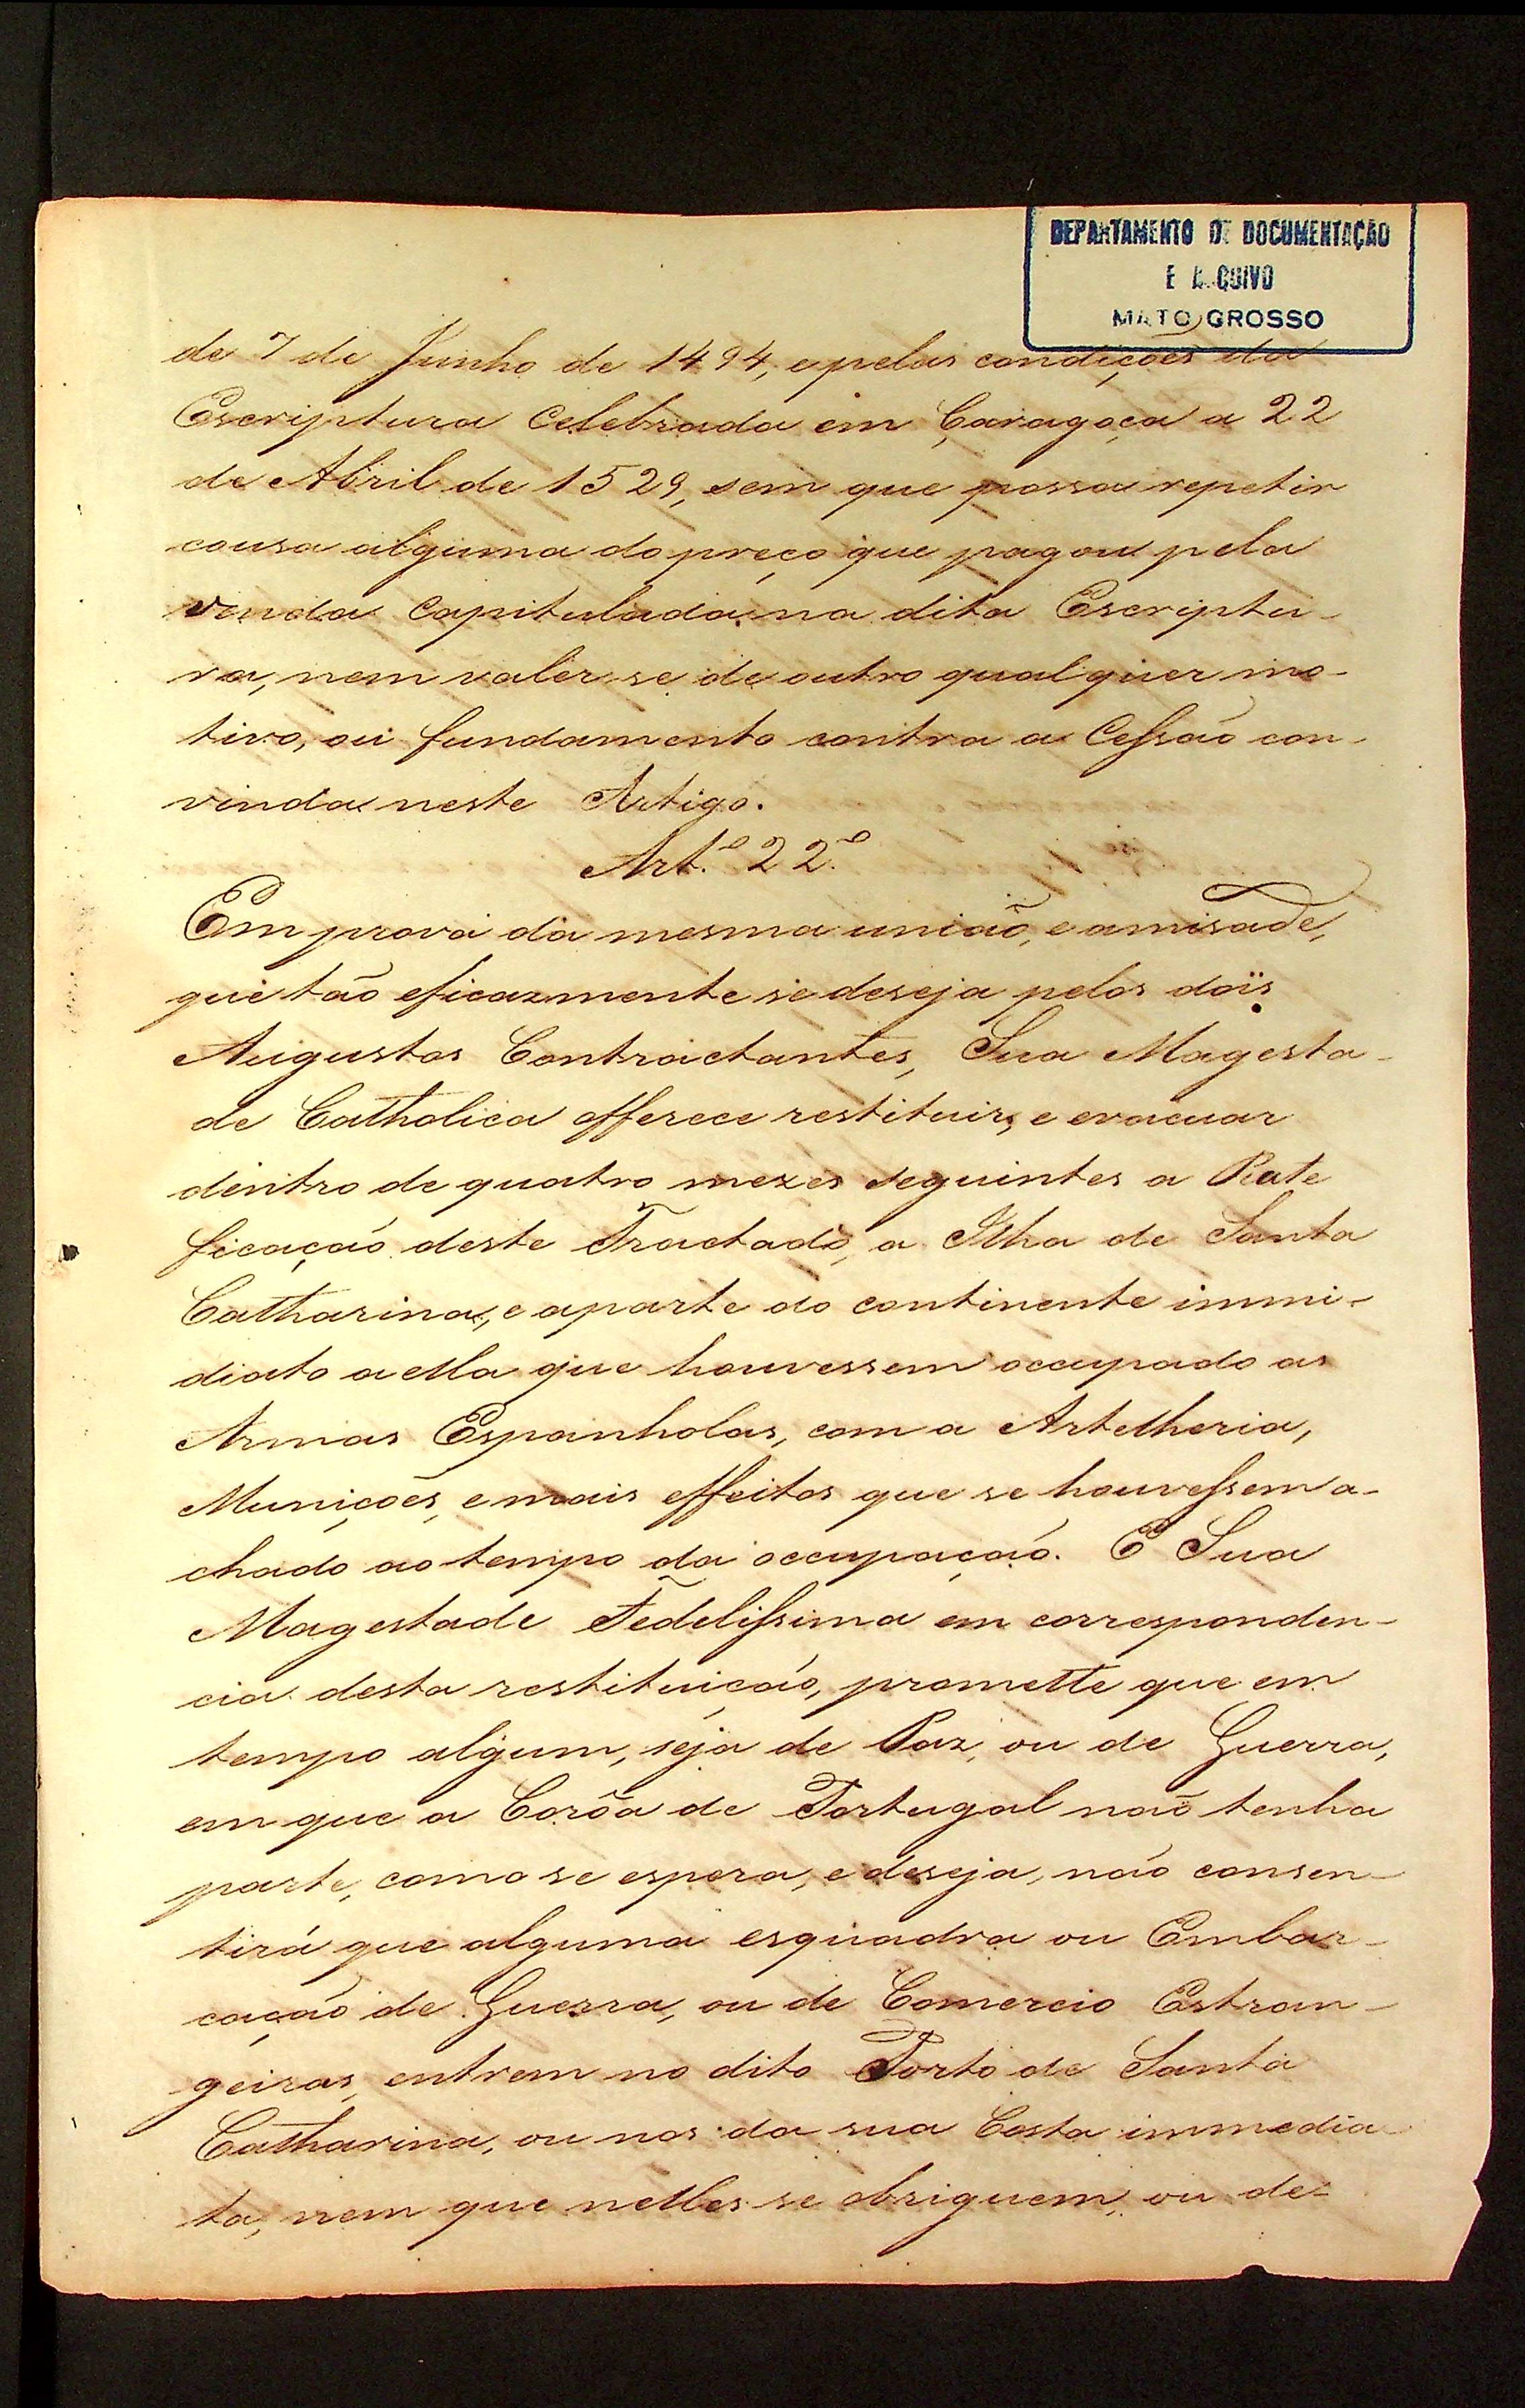 DEPARTAMENTO DE DOCUMENTAÇÃO
E ARQUIVO
MATO GROSSO
de 7 de Junho de 1494, e pelas condições da
Escriptura Celebrada em Çaragoça a 22
de Abril de 1529, sem que possa repetir
cousa alguma do preço que pagou pela
venda Capitulada na dita Escriptu-
ra, nem valer-se de outro qualquer mo-
tivo, ou fundamento contra a Ceſsão con-
vinda neste Artigo.
Art.º 22.º
Em prova da mesma união, e amisade,
que tão eficazmente se deseja pelos dois
Augustos Contractantes, Sua Magesta-
de Catholica offerece restituir, e evacuar
dentro de quatro mezes seguintes a Rate
ficação deste Tractado, a Ilha de Santa
Catharina, e aparte do continente immi-
diato a ella que houvessem occupado as
Armas Espanholas, com a Artelheria,
Munições, e mais effeitos que se houveſsem a-
chado ao tempo da occupação. E Sua
Magestade Fedeliſsima em corresponden-
cia desta restituição, promette que em
tempo algum, seja de Paz, ou de Guerra,
em que a Corôa de Portugal não tenha
parte, como se espera, e deseja, não consen-
tirá que alguma esquadra ou Embar-
cação de Guerra, ou de Comercio Estran-
geiras, entrem no dito Porto de Santa
Catharina, ou nos da sua Costa immedia
ta, nem que nelles se abriguem, ou de-